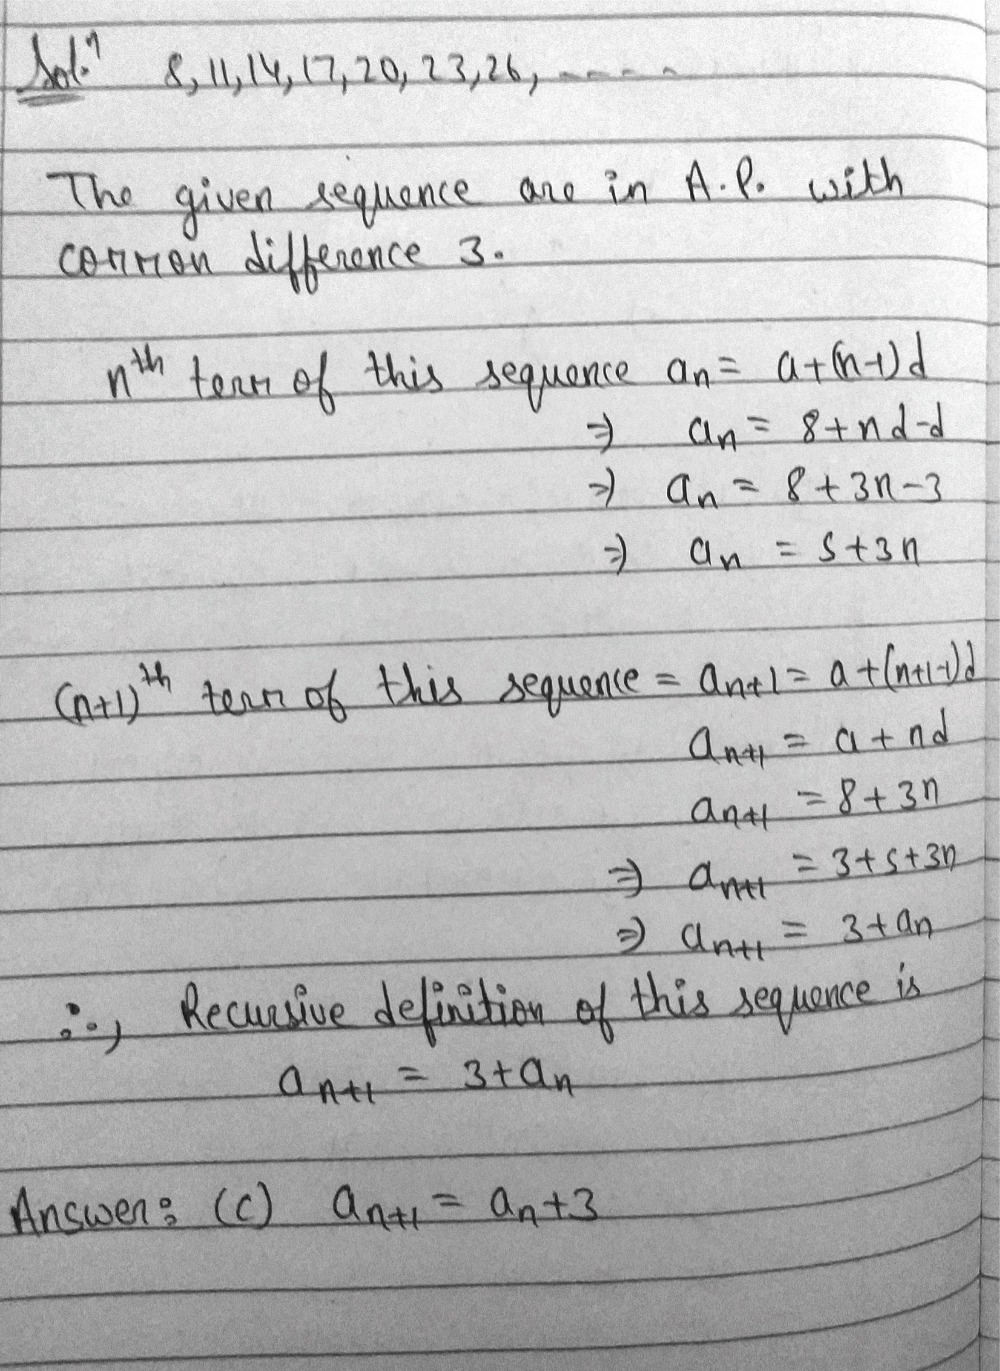 Sol.n 8, 11, 14, 17, 20, 23, 26, -----
The given sequence are in A.P. with
common difference 3.
nth term of this sequence an = a+(n-1)d
⇒ an = 8+nd-d
⇒ an = 8+3n-3
⇒ an = 5+3n
(n+1)th term of this sequence = an+1 = a+(n+1-1)d
an+1 = a+nd
an+1 = 8+3n
⇒ an+1 = 3+5+3n
⇒ an+1 = 3+an
∴, Recursive definition of this sequence is
an+1 = 3+an
Answer: (C) an+1 = an+3